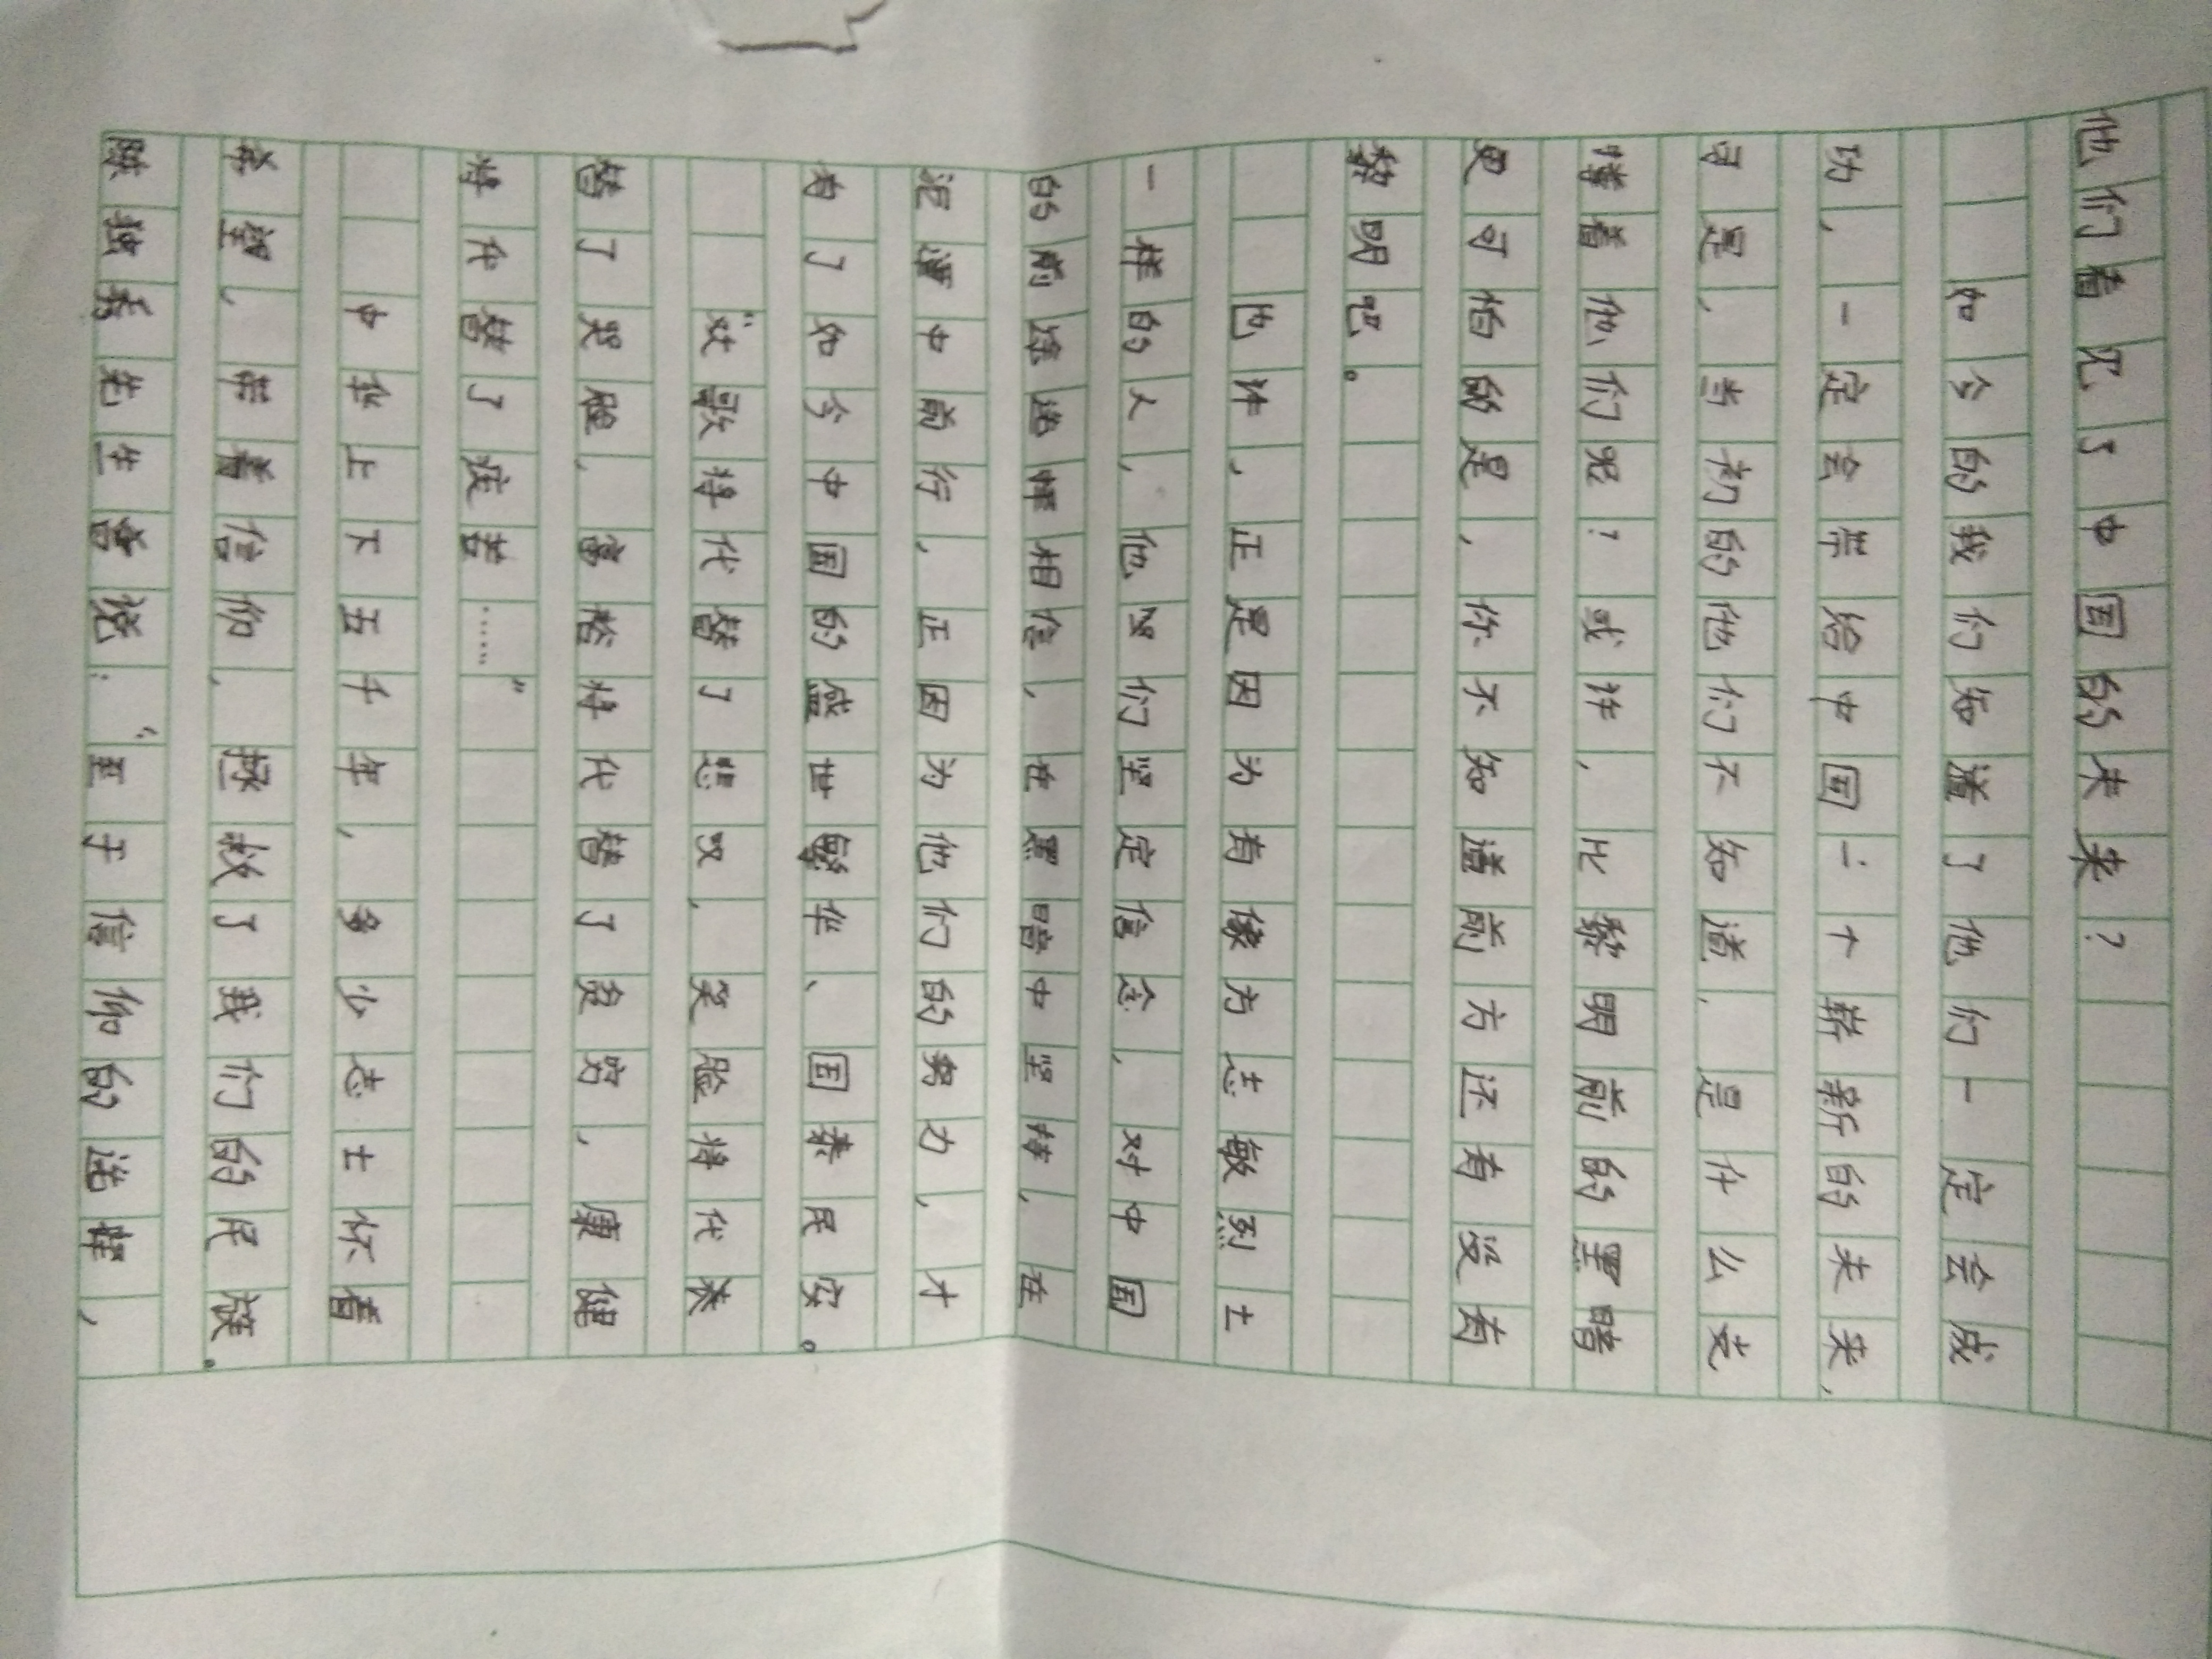 他们看见了中国的未来？
如今的我们知道了他们一定会成
功，一定会带给中国一个崭新的未来，
可是，当初的他们不知道，是什么支
撑着他们呢？或许，比黎明前的黑暗
更可怕的是，你不知道前方还有没有
黎明吧。
也许，正是因为有像方志敏烈士
一样的人，他们坚定信念，对中国
的前途光辉相信，在黑暗中坚持，在
泥潭中前行，正因为他们的努力，才
有了如今中国的盛世繁华、国泰民安。
“欢歌将代替了悲叹，笑脸将代来
替了哭脸，富裕将代替了贫穷，康健
将代替了疾苦……”
中华上下五千年，多少志士怀着
希望，带着信仰，拯救了我们的民族。
陈独秀先生曾说：“至于信仰的选择，